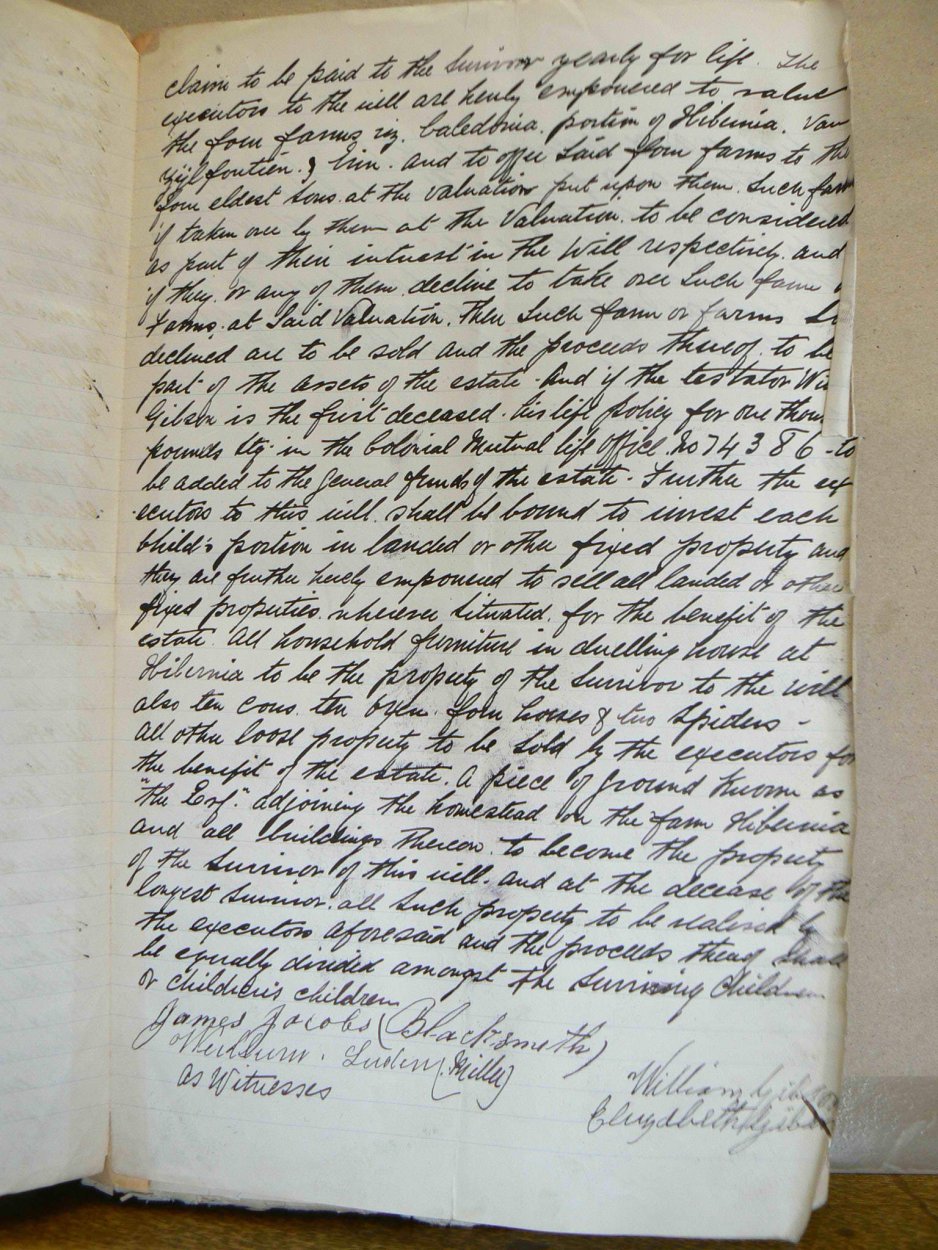 claim to be paid to the survivor yearly for life. The
executors to the will are hereby empowered to value
the four farms viz. Caledonia. portion of Hibernia. Van
Zijl fontien. & Erin. and to offer said four farms to the
four eldest sons. at the valuation put upon them. Such farm
if taken over by them at the Valuation. to be considered
as part of their interest in the Will respectively. and
if they. or any of them. decline to take over such farm
farms. at said Valuation. Then such farm or farms so
declined are to be sold and the proceeds thereof. to be
part of the assets of the estate. And if the testator Wm
Gibson is the first deceased. his life policy for one thous
pounds stg. in the Colonial Mutual life office. No 74386 - to
be added to the general funds of the estate. Further the ex
ecutors to this will. shall be bound to invest each
child's portion in landed or other fixed property and
they are further hereby empowered to sell all landed or other
fixed properties. wherever situated. for the benefit of the
estate. All household furniture in dwelling house at
Hibernia to be the property of the survivor to the will
also ten cows. ten oxen. four horses & two Spiders -
All other loose property to be sold by the executors for
the benefit of the estate. A piece of ground known as
"the Erf." adjoining the homestead on the farm Hibernia
and all buildings thereon. to become the property
of the survivor of this will. and at the decease of the
longest survivor. all such property to be realised by
the executors aforesaid and the proceeds thereof shall
be equally divided amongst the surviving children
or children's children
James Jacobs (Blacksmith)
(Miller)
As Witnesses
William Gibson
Elizabeth Gibson